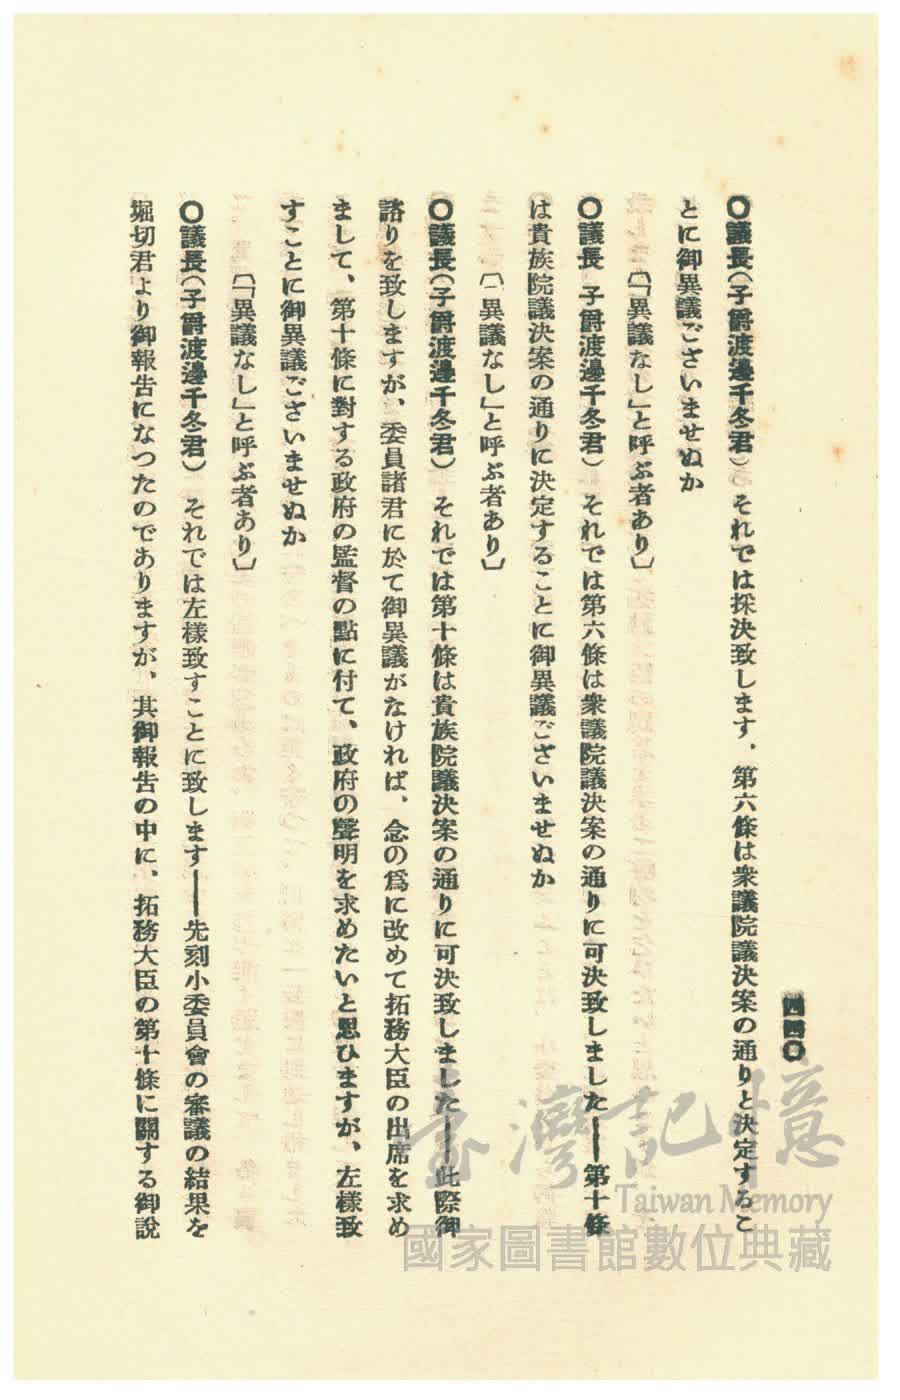 四四〇
〇議長(子爵渡邊千冬君) それでは採決致します、第六條は衆議院議決案の通りと決定するこ
とに御異議ございませぬか
〔「異議なし」と呼ぶ者あり〕
〇議長 子爵渡邊千冬君) それでは第六條は衆議院議決案の通りに可決致しました――第十條
は貴族院議決案の通りに決定することに御異議ございませぬか
〔「異議なし」と呼ぶ者あり〕
〇議長(子爵渡邊千冬君) それでは第十條は貴族院議決案の通りに可決致しました――此際御
諮りを致しますが、委員諸君に於て御異議がなければ、念の爲に改めて拓務大臣の出席を求め
まして、第十條に對する政府の監督の點に付て、政府の聲明を求めたいと思ひますが、左樣致
すことに御異議ございませぬか
〔「異議なし」と呼ぶ者あり〕
〇議長(子爵渡邊千冬君) それでは左樣致すことに致します――先刻小委員會の審議の結果を
堀切君より御報告になつたのでありますが、其御報告の中に、拓務大臣の第十條に關する御說
臺灣記憶
Taiwan Memory
國家圖書館數位典藏